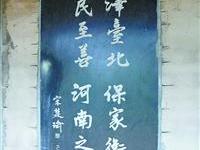 澤臺北 保家衛
民至善 河南之
宋楚瑜